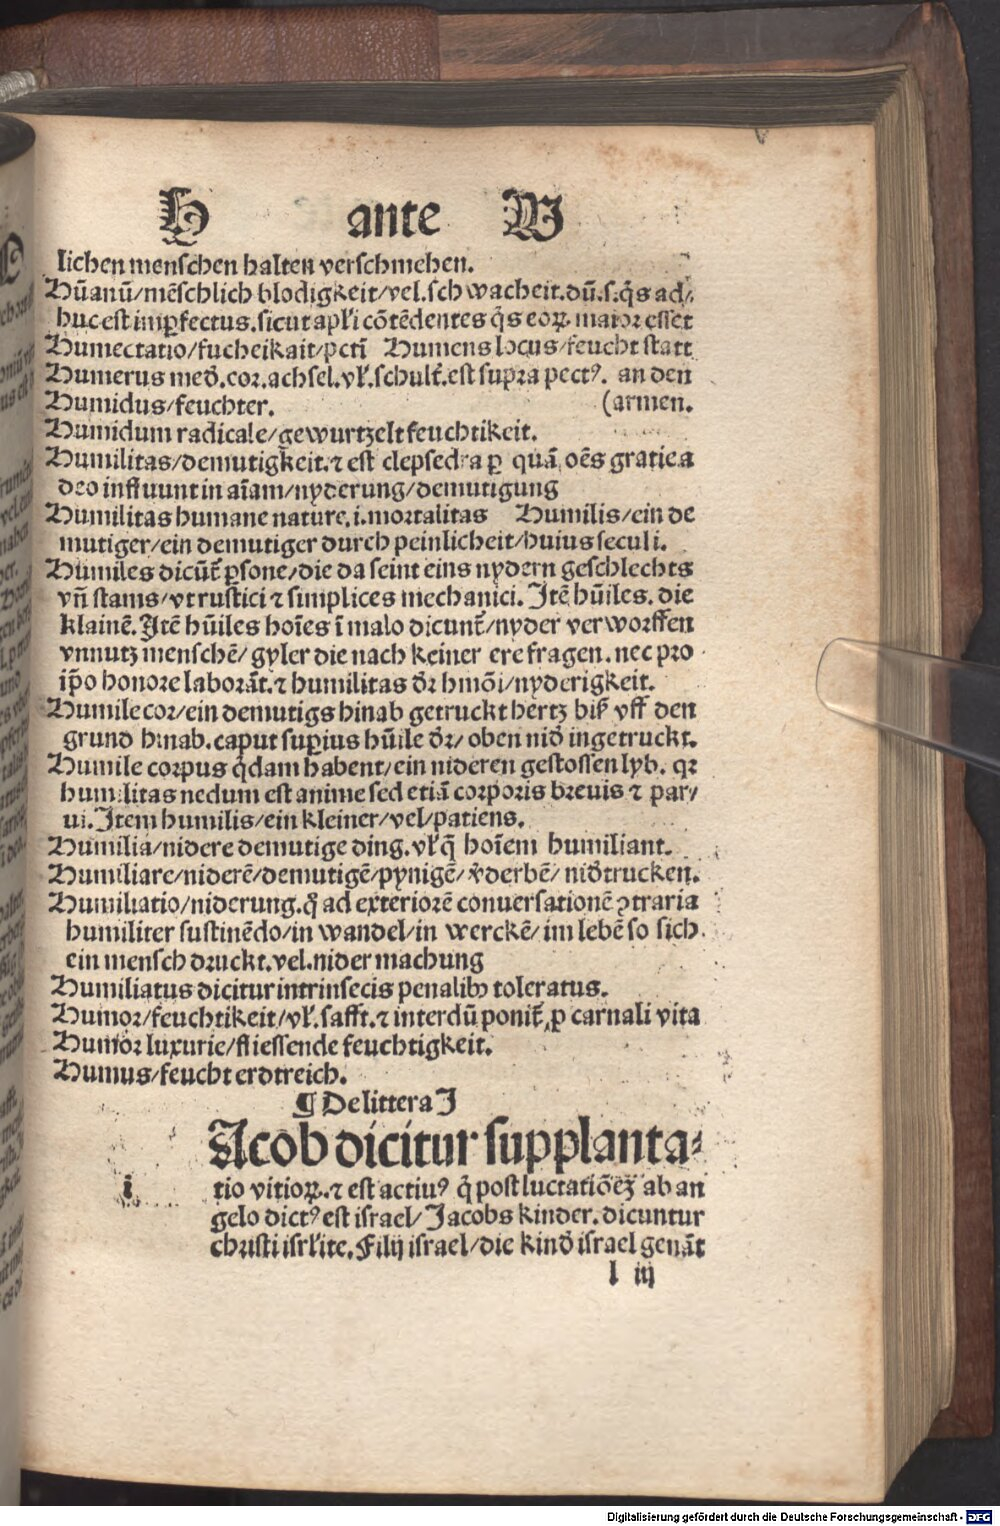 H ante W
lichen menschen halten verschmehen.
Hūanū/mēschlich blodigkeit/vel.schwacheit.dū.s.q̄s ad/
huc est imꝑfectus.sicut apľi cōtēdentes q̄s eoꝝ maior esset
Humectatio/fucheikait/ Humens locus/feucht statt
Humerus med̄.cor.achsel.vľ.schulť.est supra pectꝰ. an den
Humidus/feuchter. (armen.
Humidum radicale/gewurtzelt feuchtikeit.
Humilitas/demutigkeit.⁊ est clepsedra ꝑ quā oēs gratie a
deo influunt in aīam/nyderung/demutigung
Humilitas humane nature.i.mortalitas Humilis/ein de
mutiger/ein demutiger durch peinlicheit/huius seculi.
Humiles dicūt̄ ꝑsone/die da seint eins nydern geschlechts
vn̄ stams/vt rustici ⁊ simplices mechanici. Itē hūiles. die
klainē. Itē hūiles hoīes ī malo dicunt̄/nyder verworffen
vnnutz menschē/gyler die nach keiner ere fragen. nec pro
ip̄o honore laborāt.⁊ humilitas dr̄ hmōi/nyderigkeit.
Humile cor/ein demutigs hinab getruckt hertz biß vff den
grund hinab.caput suꝑius hūile dr̄/oben nid̄ ingetruckt.
Humile corpus q̄dam habent/ein nideren gestossen lyb. qr
humilitas nedum est anime sed etiā corporis breuis ⁊ par/
ui. Item humilis/ein kleiner/vel/patiens.
Humilia/nidere demutige ding.vľ q̄ hoīem humiliant.
Humiliare/niderē/demutigē/pynigē/v̄derbē/nid̄trucken.
Humiliatio/niderung.q̄ ad exteriorē conuersationē ꝯtraria
humiliter sustinēdo/in wandel/in werckē/im lebē so sich
ein mensch druckt.vel.nider machung
Humiliatus dicitur intrinsecis penalibꝫ toleratus.
Humor/feuchtikeit/vľ.safft.⁊ interdū ponit̄ ꝑ carnali vita
Humor luxurie/fliessende feuchtigkeit.
Humus/feucht erdtreich.
¶ De littera I
i. Acob dicitur supplanta-
tio vitioꝝ.⁊ est actiuꝰ q̄ post luctatiōeꝫ ab an
gelo dictꝰ est israel/Jacobs kinder.dicuntur
christi isrľite.Filij israel/die kind̄ israel genāt
l iij
Digitalisierung gefördert durch die Deutsche Forschungsgemeinschaft - DFG